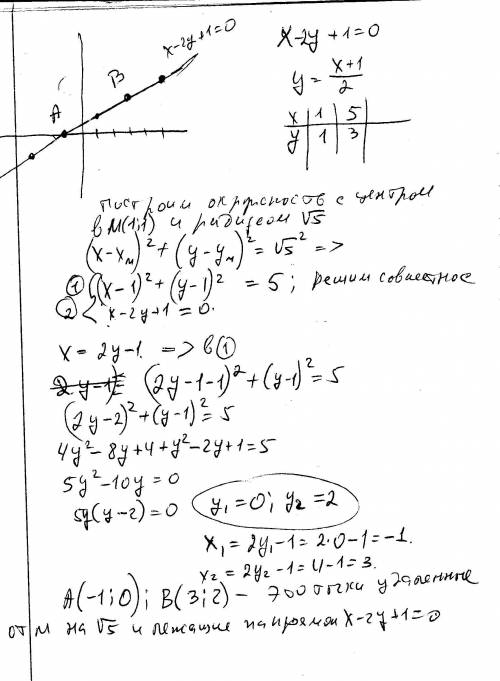 x-2y+1=0
B
A
x-2y+1=0
y = (x+1)/2
x | 1 | 5
y | 1 | 3
построим окружность с центром
в M(1;1) и радиусом √5
(x-xм)² + (y-yм)² = √5² =>
① {(x-1)² + (y-1)² = 5; решим совместное
② x-2y+1=0.
x = 2y-1. => в ①
(2y-1-1)² + (y-1)² = 5
(2y-2)² + (y-1)² = 5
4y² - 8y + 4 + y² - 2y + 1 = 5
5y² - 10y = 0
5y(y-2) = 0 y₁ = 0; y₂ = 2
x₁ = 2y₁-1 = 2·0-1 = -1.
x₂ = 2y₂-1 = 4-1 = 3.
A(-1;0); B(3;2) - это точки удаленные
от M на √5 и лежащие на прямой x-2y+1=0